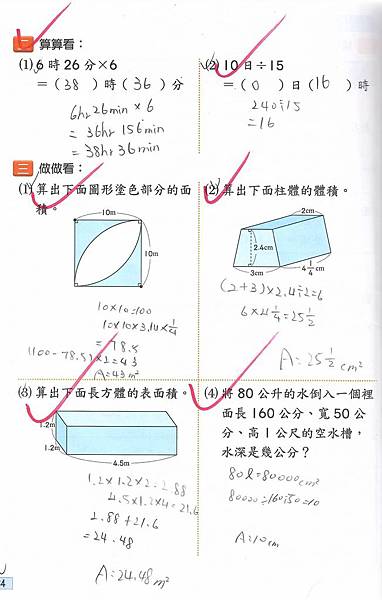 二 算算看：
(1) 6 時 26 分 × 6
＝（38）時（36）分
6hr 26min × 6
= 36hr 156min
= 38hr 36min
(2) 10 日 ÷ 15
＝（0）日（16）時
240÷15
=16
三 做做看：
(1) 算出下面圖形塗色部分的面
積。
10m
10m
10×10=100
10×10×3.14×1/4
= 78.5
(100-78.5)×2=43
A=43m²
(2) 算出下面柱體的體積。
2cm
2.4cm
3cm
4 1/4 cm
(2+3)×2.4÷2=6
6×4 1/4=25 1/2
A=25 1/2 cm²
(3) 算出下面長方體的表面積。
1.2m
1.2m
4.5m
1.2×1.2×2=2.88
4.5×1.2×4=21.6
2.88+21.6
=24.48
A=24.48m²
(4) 將 80 公升的水倒入一個裡
面長 160 公分、寬 50 公
分、高 1 公尺的空水槽，
水深是幾公分？
80l=80000cm³
80000÷160÷50=10
A=10cm
4